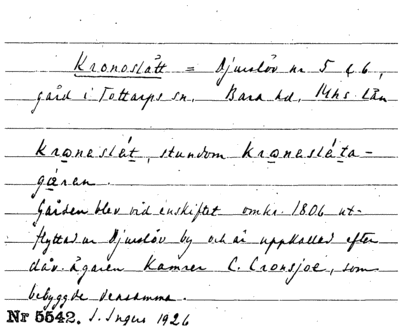 Kronoslätt = Djurslöv nr 5 & 6,
gård i Tottarps sn, Bara hd, Mhs län
kronəslät, stundom kronəsläta-
gåran.
Gården blev vid enskiftet omkr. 1806 ut-
flyttad ur Djurslöv by och är uppkallad efter
dåv. ägaren Kamrer C. Cronsjoe, som
bebyggde densamma.
Nr 5542. I. Ingers 1926